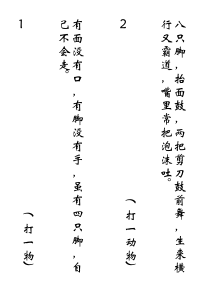 1
有面没有口，有脚没有手，虽有四只脚，自
己不会走。
（打一物）
2
八只脚，抬面鼓，两把剪刀鼓前舞，生来横
行又霸道，嘴里常把泡沫吐。
（打一动物）